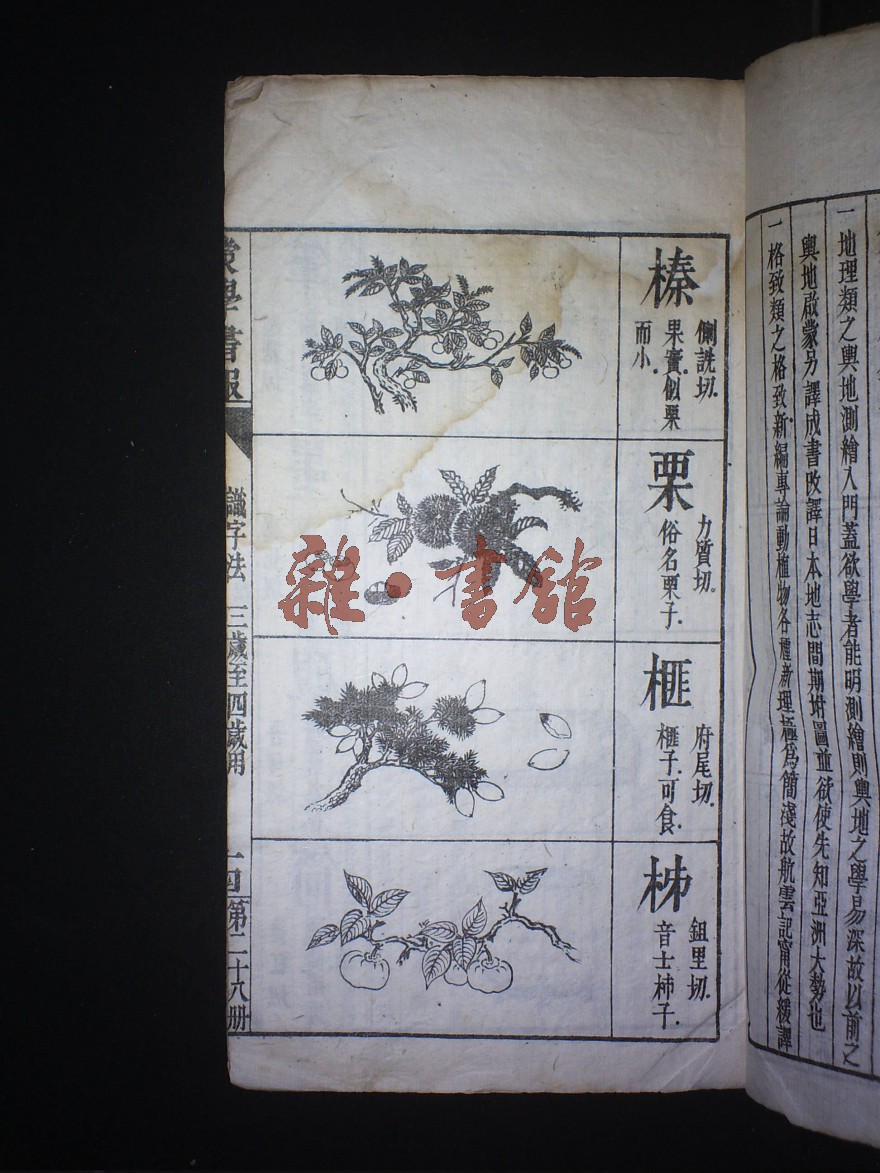 一地理類之輿地測繪入門蓋欲學者能明測繪則輿地之學易深故以前之
輿地啟蒙另譯成書改譯日本地志問期坿圖並欲使先知亞洲大勢也
一格致類之格致新編專論動植物各種新理極爲簡淺故航雲記甯從緩譯
榛
側詵切
果實似栗
而小
栗
力質切
俗名栗子
榧
府尾切
榧子可食
柹
鉏里切
音士柿子
蒙學書報
識字法 三歲至四歲用
十四
第二十八册
雜·書館